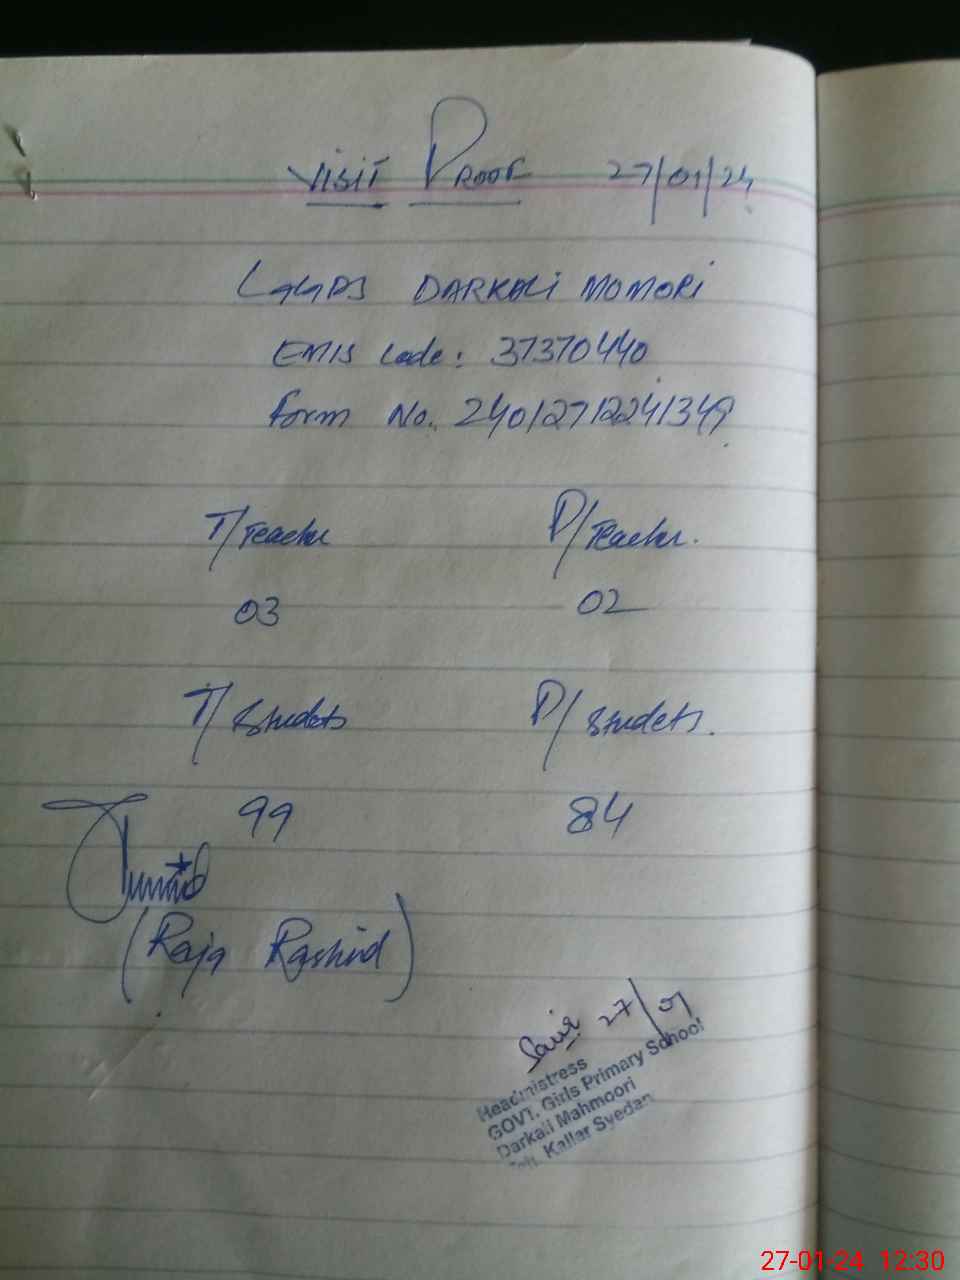 VISIT PROOF 27/01/24
GGPS DARKALI MOMORI
EMIS Code: 37370440
Form No. 24012712241349
T/Teacher P/Teacher.
03 02
T/Students P/Students.
99 84
(Raja Rashid)
27/01
Headmistress
GOVT. Girls Primary School
Darkali Mahmoori
Kallar Syedan
27-01-24 12:30